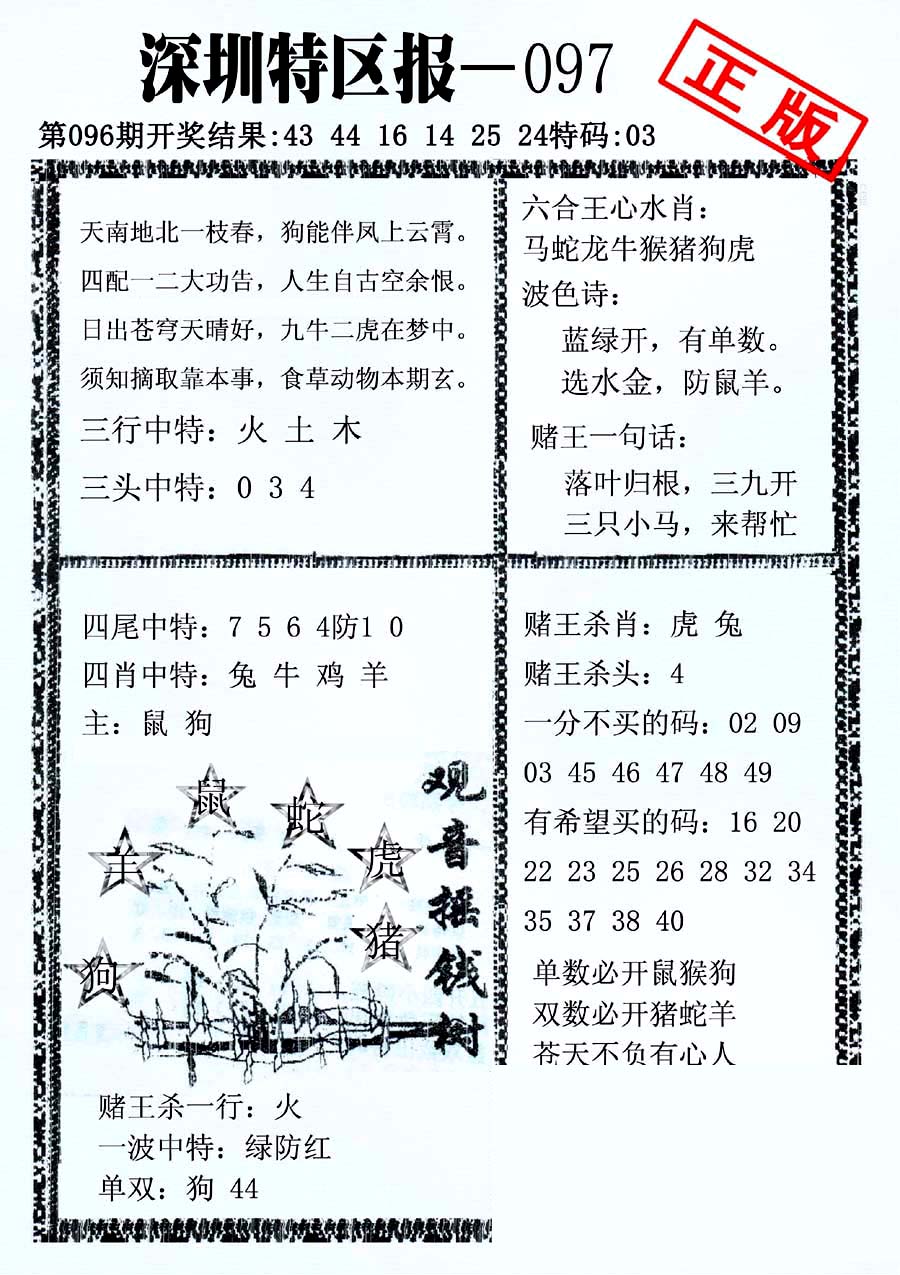 深圳特区报—097
正版
第096期开奖结果:43 44 16 14 25 24特码:03
天南地北一枝春，狗能伴凤上云霄。
四配一二大功告，人生自古空余恨。
日出苍穹天晴好，九牛二虎在梦中。
须知摘取靠本事，食草动物本期玄。
三行中特：火 土 木
三头中特：0 3 4
六合王心水肖：
马蛇龙牛猴猪狗虎
波色诗：
蓝绿开，有单数。
选水金，防鼠羊。
赌王一句话：
落叶归根，三九开
三只小马，来帮忙
四尾中特：7 5 6 4防1 0
四肖中特：兔 牛 鸡 羊
主：鼠 狗
鼠
蛇
羊
虎
猪
狗
观音摇钱树
赌王杀一行：火
一波中特：绿防红
单双：狗 44
赌王杀肖：虎 兔
赌王杀头：4
一分不买的码：02 09
03 45 46 47 48 49
有希望买的码：16 20
22 23 25 26 28 32 34
35 37 38 40
单数必开鼠猴狗
双数必开猪蛇羊
苍天不负有心人